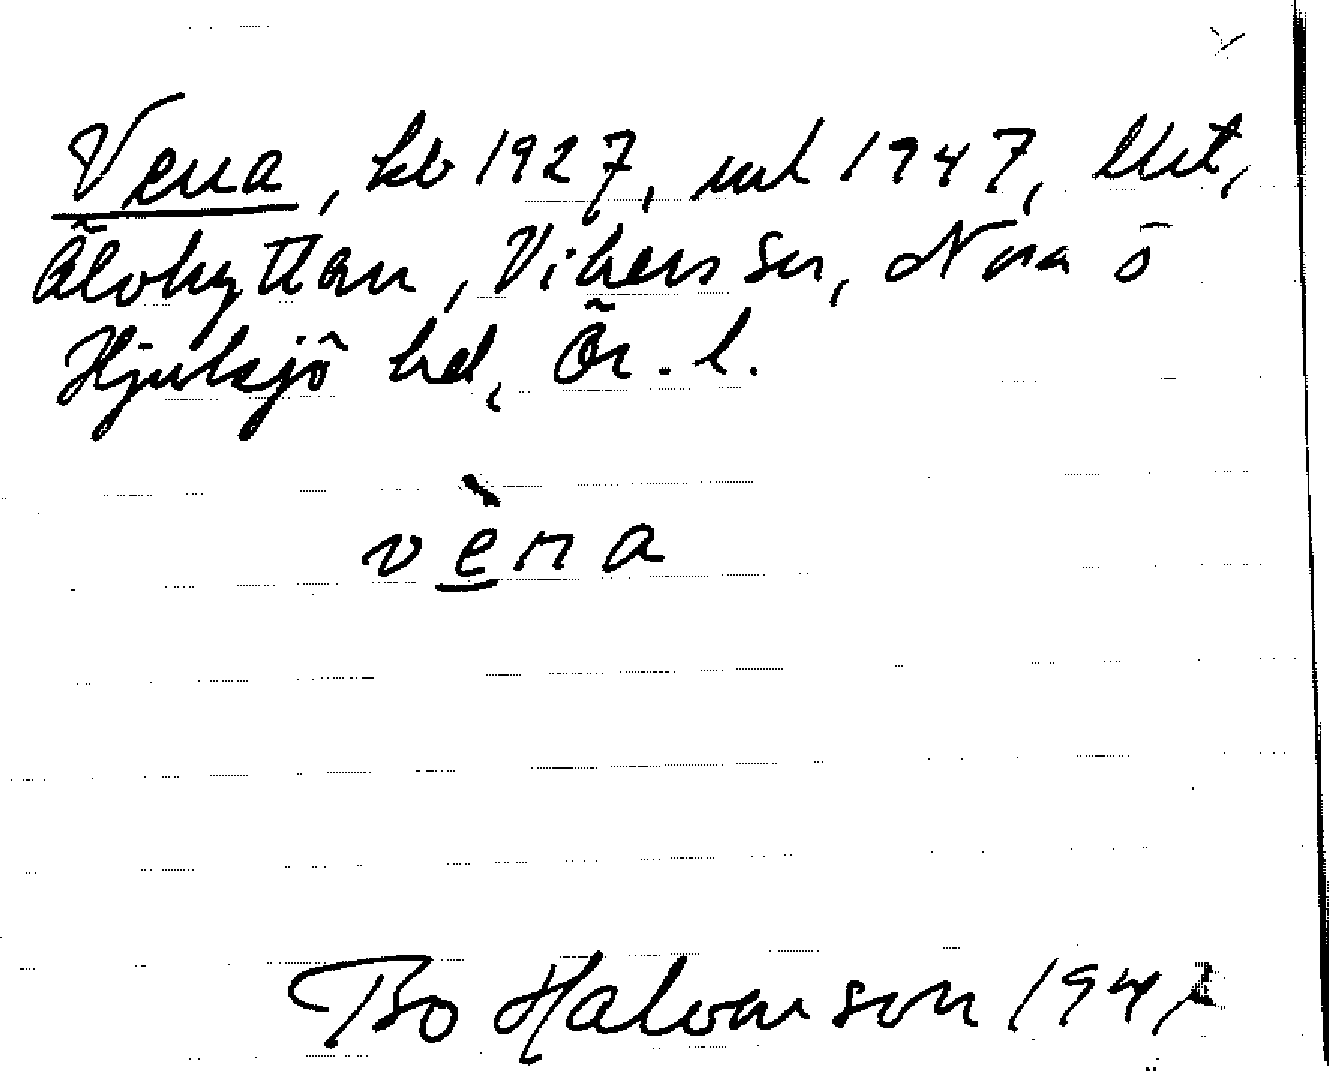 Vena, kb 1927, ml 1947, lht,
Älvhyttan, Vikers sn, Nora ö
Hjulsjö hd, Ör. l.
vèna
Bo Halvarson 194